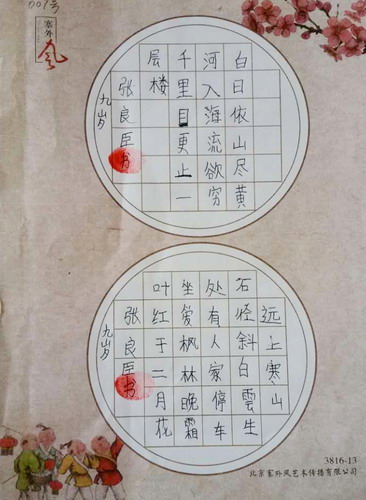 001号
塞外
风
白日依山尽黄
河入海流欲穷
千里目更止一
层楼
张良臣书
九岁
远上寒山
石径斜白雲生
处有人家停车
坐爱枫林晚霜
叶红于二月花
张良臣书
九岁
3816-13
北京塞外风艺术传播有限公司